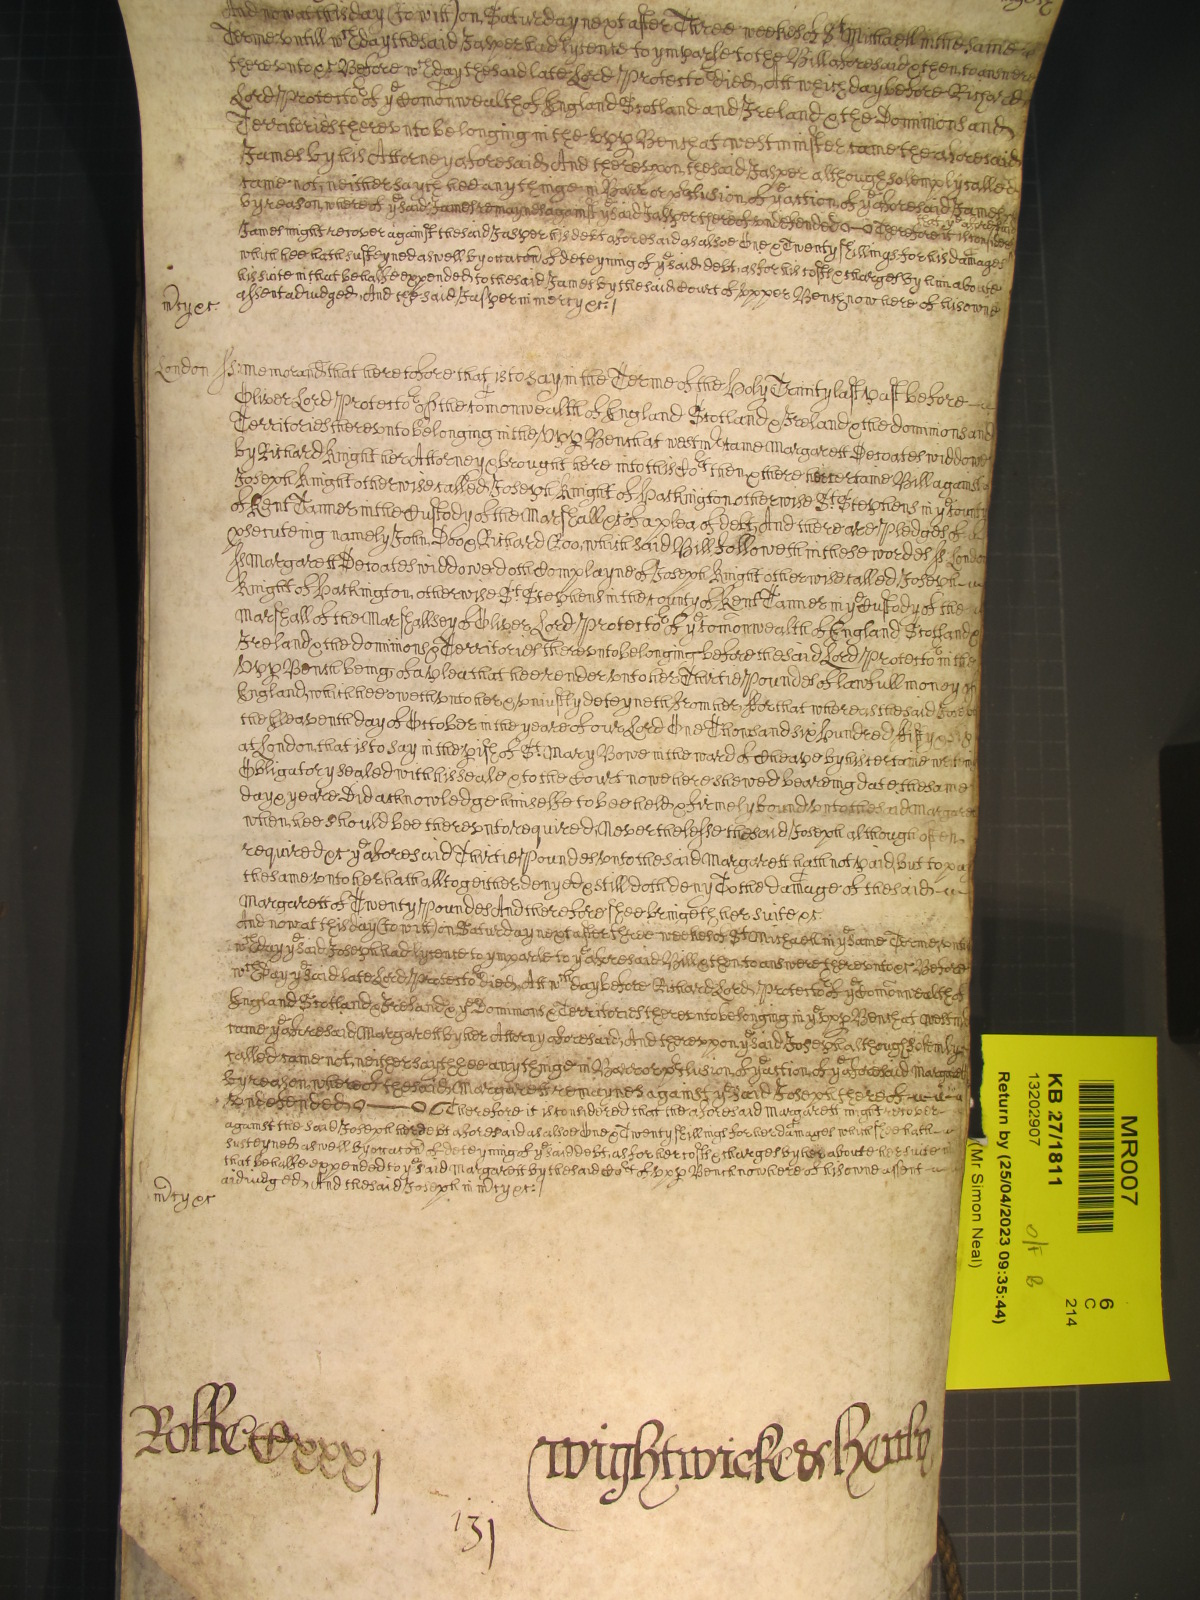 And now at this day (to witt) on Saturday next after Three weekes of St Michaell in the same
Terme untill wch day the said Jasper had lycence to imparle to the Bill aforesaid & then to answere
thereunto &c Before wch day the said late Lord Protector died, Att which day before Richard
Lord Protector of ye Comonwealth of England Scotland and Ireland & the Dominions and
Territories thereunto belonging in the Upp Bench at westminster came the aforesaid
James by his Attorney aforesaid, And thereupon the said Jasper although solemply called
came not, neither sayth hee any thinge in Barr or p'clusion of ye action of ye aforesaid James
by reason whereof ye said James remaynes against ye said Jasper thereof undefended Therefore it is considered
that ye aforesaid
James might recover against the said Jasper his debt aforesaid as alsoe One & Twenty shillings for his damages
which hee hath susteyned as well by occacon of deteyning of ye said debt, as for his costs & charges by him about
his suite in that behalfe expended, to the said James by the said Court of Upper Bench now here of his owne
assent adiudged, And the said Jasper in mercy &c.
m'cy &c
London ss: memorand that heretofore that is to say in the Terme of the Holy Trinity last past before
Oliver Lord Protector of the comonwealth of England Scotland & Ireland & the dominions and
Territories thereunto belonging in the Upp Bench at westmr came Margarett Decoates widdowe
by Richard Knight her Attorney & brought here into this Cort then & there her certaine Bill against
Joseph Knight otherwise called Joseph Knight of Hackington otherwise St Stephens in ye County
of Kent Tanner in the Custody of the Marshall &c of a plea of debt, And there are Pledges of
p'secuteing namely John Doo & Richard Roo, which said Bill followeth in these wordes ss London
ss Margarett Decoates widdowe doth Complayne of Joseph Knight otherwise called Joseph
Knight of Hackington, otherwise St Stephens in the county of Kent Tanner in ye Custody of the
Marshall of the Marshallsey of Oliver Lord Protector of ye comonwealth of England Scotland &
Ireland & the dominions & Territories thereunto belonging before the said Lord Protector in the
Upp Bench being, of a plea that hee render unto her Thirtie Poundes of lawfull money of
England, which hee oweth unto her, & uniustly deteyneth from her, For that whereas the said Joseph
the Eleaventh day of October in the yeare of our Lord One Thousand six hundred fifty & six
at London, that is to say in the p'ish of St Mary Bowe in the ward of Cheape by his certaine writing
Obligatory sealed with his seale & to the Court nowe here shewed beareing date the same
day & yeare Did acknowledge himselfe to bee held & firmely bound unto the said Margarett
when hee should bee thereunto required, Neverthelesse the said Joseph although often
required &c ye aforesaid Thirtie Poundes unto the said Margarett hath not paid, but to pay
the same unto her hath alltogeither denyed, & still doth deny To the damage of the said
Margarett of Twenty Poundes And therefore shee bringeth her suite &c
And now at this day (to witt) on Saturday next after three weekes of St Michaell in ye same Terme untill
wch day ye said Joseph had lycence to imparle to ye aforesaid Bill & then to answere thereunto &c Before
wch day ye said late Lord Protector died, Att wch day before Richard Lord Protector of ye Comonwealth of
England Scotland & Ireland & ye Dominions & Territories thereunto belonging in ye Upp Bench at westmr
came ye aforesaid Margarett by her Attorny aforesaid, And thereupon ye said Joseph although solemply
called came not, neither sayth hee any thinge in Barr or p'clusion of ye action of ye aforesaid Margarett
by reason whereof the said Margarett remaynes against ye said Joseph thereof
undefended Therefore it is considered that the aforesaid Margarett might recover
against the said Joseph her debt aforesaid as alsoe One & Twenty shillings for her damages which shee hath
susteyned as well by occacon of deteyning of ye said debt, as for her costs & charges by her about her suite in
that behalfe expended to ye said Margarett by the said Cort of Upp Bench now here of his owne assent
adiudged, And the said Joseph in m'cy &c.
m'cy &c
Rolle Cxxxj
Wightwicke & Henly
131
MR007
KB 27/1811
13202907
Return by (25/04/2023 09:35:44)
(Mr Simon Neal)
6
C
214
O/F B